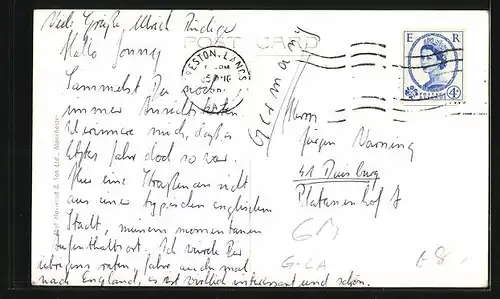 Viele Grüße Ulrich Rüdiger
Hallo Jonny
Sammelst Du noch
immer Ansichtskarten
Erinnere mich, daß es
letztes Jahr doch so war.
Hier eine Straßenansicht
aus einer typischen englischen
Stadt, meinem momentanen
Aufenthaltsort. Ich würde Dir
übrigens raten, fahr auch mal
nach England, es ist wirklich interessant und schön.
POST CARD
PRESTON, LANCS
E R
POSTAGE
4D
Germany
Herrn
Jürgen Vorning
41 Duisburg
Platanenhof 7
GM
G-LA
€8,-